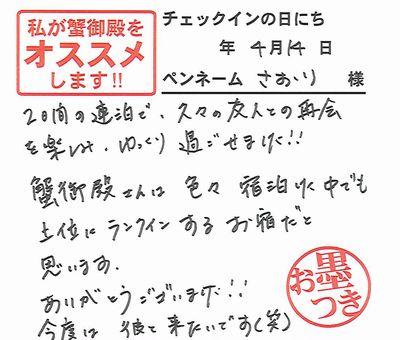 私が蟹御殿を
オススメ
します!!
チェックインの日にち
年 4月14日
ペンネーム さおり 様
2日間の連泊で、久々の友人との再会
を楽しみ、ゆっくり過ごせました!!
蟹御殿さんは 色々 宿泊した中でも
上位にランクインするお宿だと
思います.
ありがとうございました!!
今度は 彼と来たいです(笑)
お墨つき